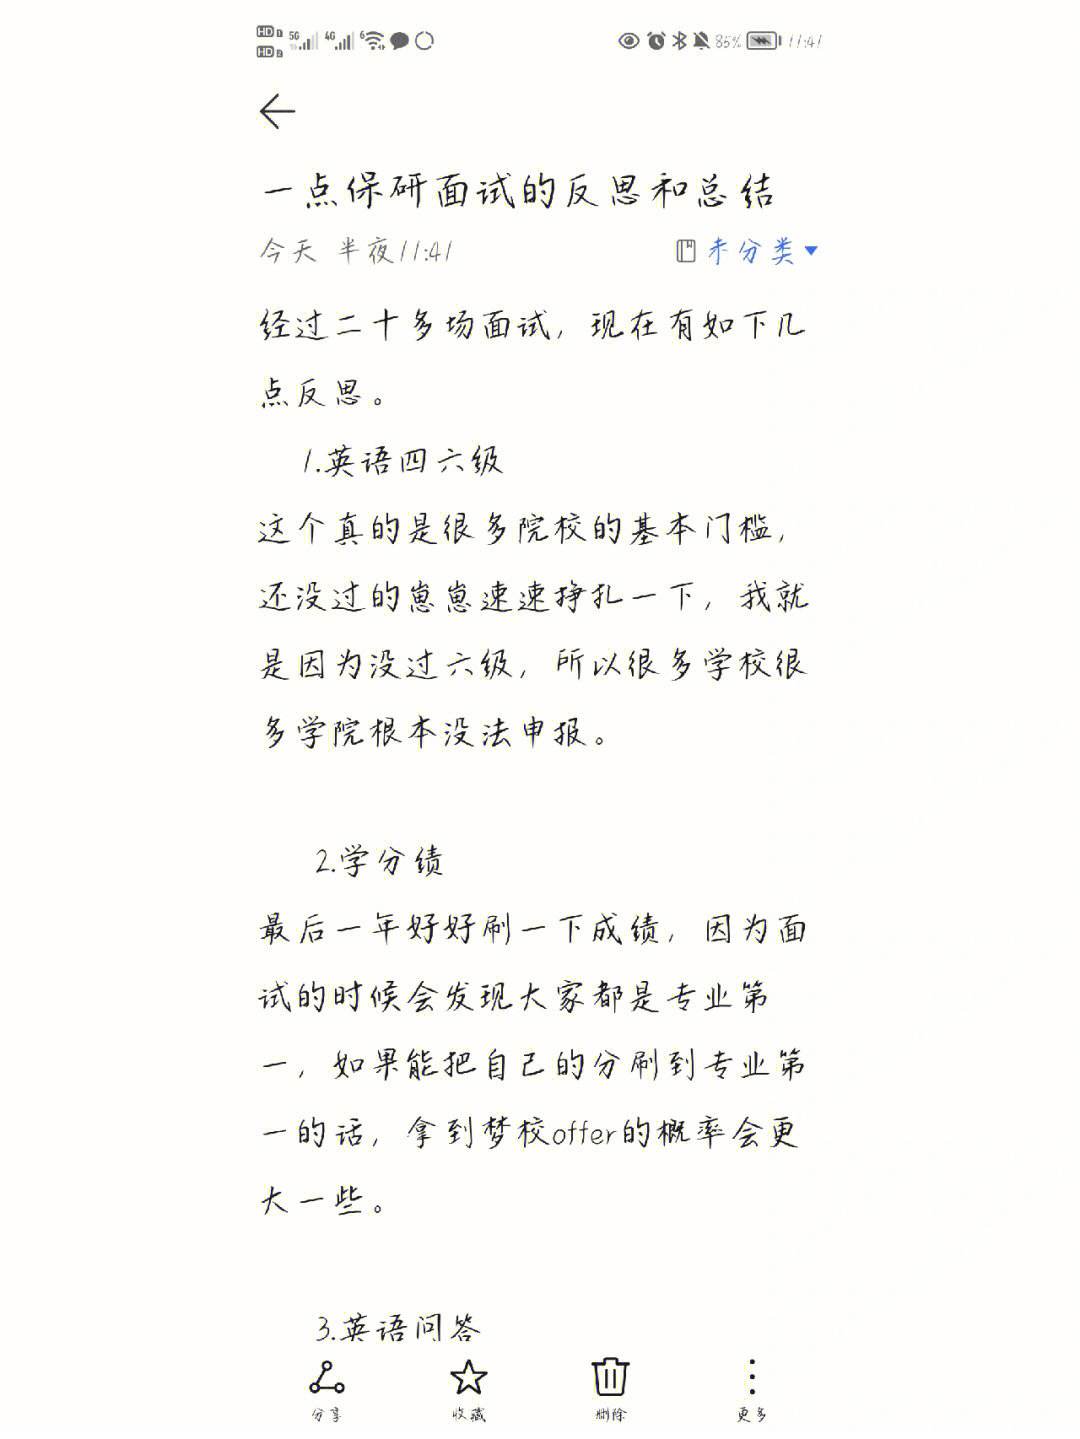 HD 1 5G 4G 6 85% 11:41
HD 2
一点保研面试的反思和总结
今天 半夜11:41 未分类
经过二十多场面试，现在有如下几
点反思。
1.英语四六级
这个真的是很多院校的基本门槛，
还没过的崽崽速速挣扎一下，我就
是因为没过六级，所以很多学校很
多学院根本没法申报。
2.学分绩
最后一年好好刷一下成绩，因为面
试的时候会发现大家都是专业第
一，如果能把自己的分刷到专业第
一的话，拿到梦校offer的概率会更
大一些。
3.英语问答
分享 收藏 删除 更多